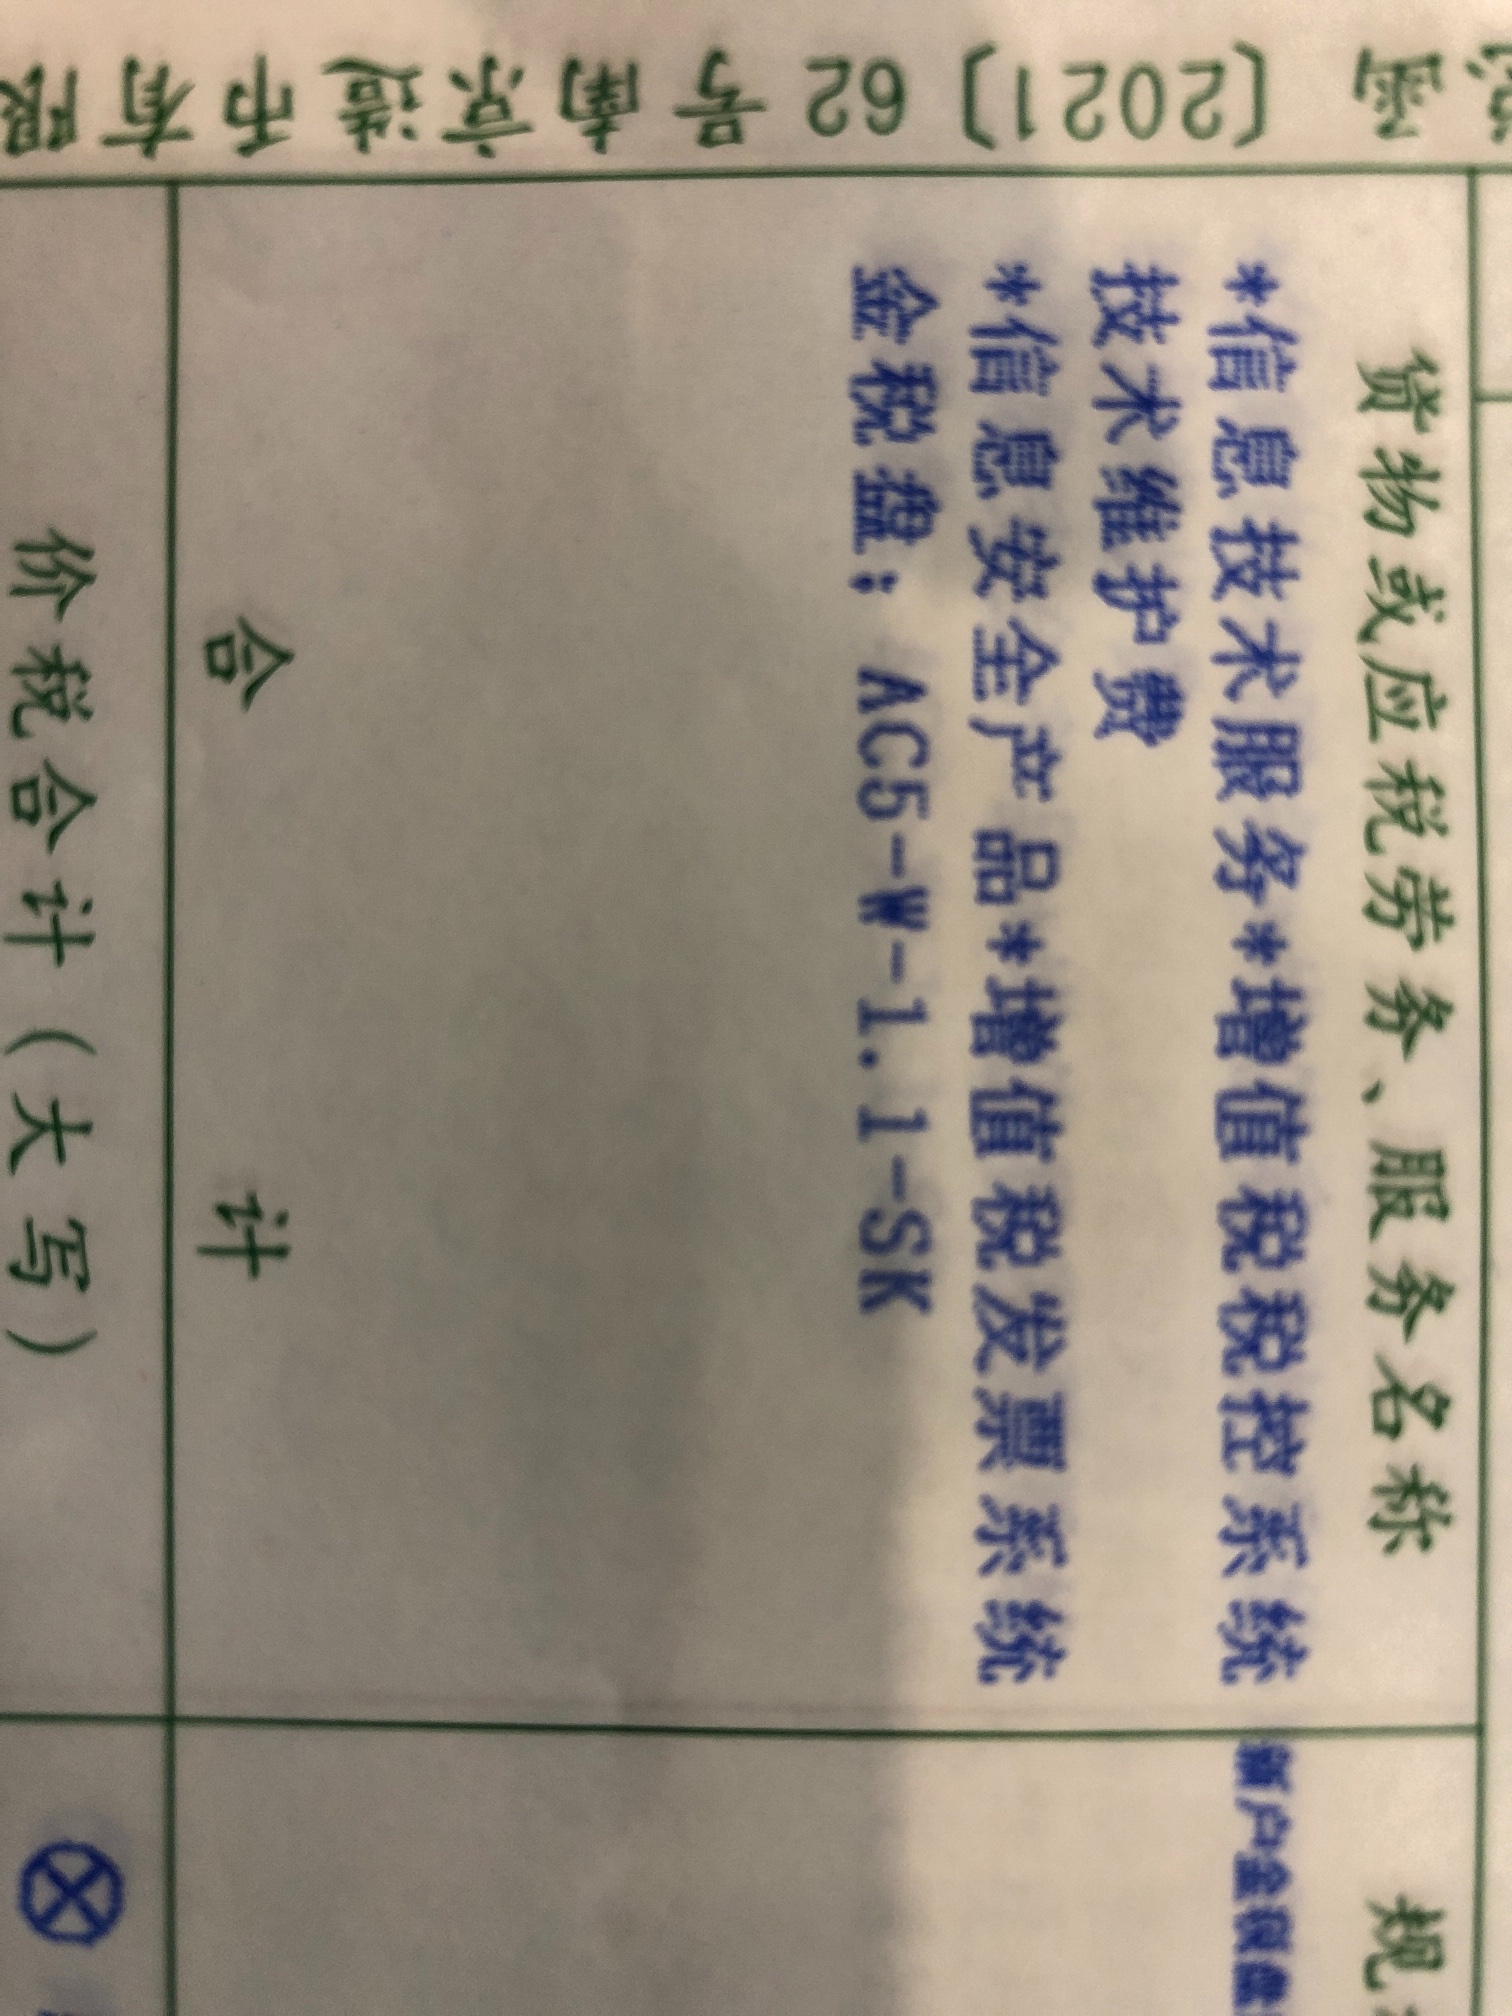 函〔2021〕62号南京造币有限
货物或应税劳务、服务名称
规
*信息技术服务*增值税税控系统
技术维护费
新户金税盘
*信息安全产品*增值税发票系统
金税盘；AC5-W-1.1-SK
合 计
价税合计（大写）